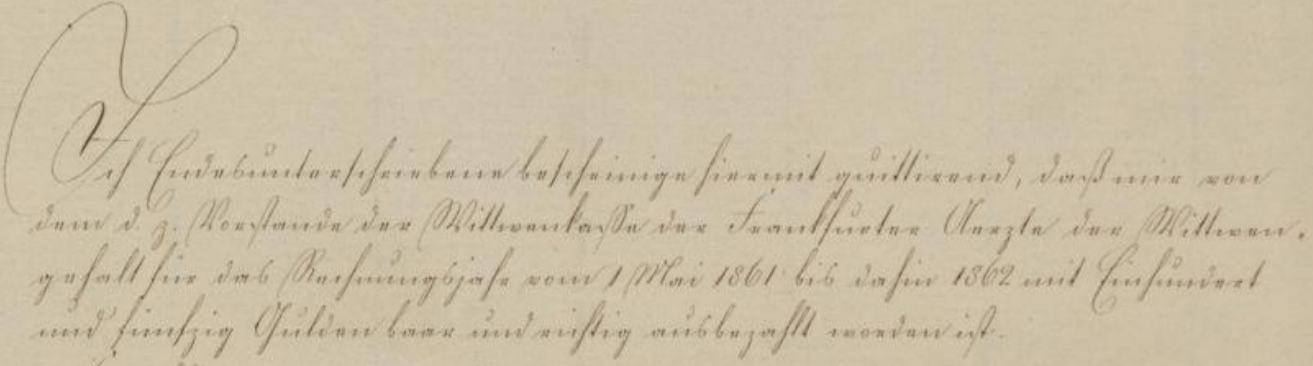 Ich Endesunterschriebene bescheinige hiermit quittirend, daß mir von
dem d. z. Vorstande der Wittwenkasse der Frankfurter Aerzte der Wittwen-
gehalt für das Rechnungsjahr vom 1 Mai 1861 bis dahin 1862 mit Einhundert
und fünfzig Gulden baar und richtig ausbezahlt worden ist.